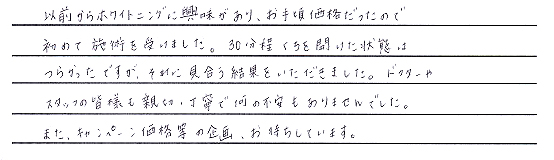 以前からホワイトニングに興味があり、お手頃価格だったので
初めて施術を受けました。30分程くちを開けた状態は
つらかったですが、それに見合う結果をいただきました。ドクターや
スタッフの皆様も親切・丁寧で何の不安もありませんでした。
また、キャンペーン価格等の企画、お待ちしています。